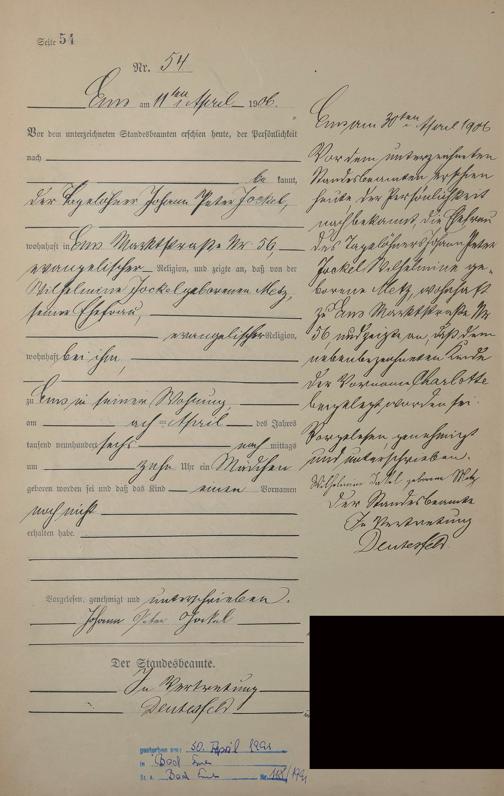 Seite 54
Nr. 54
Ems am 11ten April 1906.
Vor dem unterzeichneten Standesbeamten erschien heute, der Persönlichkeit
nach
be kannt,
der Tagelöhner Johann Peter Jockel,
wohnhaft in Ems Marktstraße Nr 56,
evangelischer Religion, und zeigte an, daß von der
Wilhelmine Jockel geborenen Metz,
seiner Ehefrau,
evangelischer Religion,
wohnhaft bei ihm,
zu Ems in seiner Wohnung
am April des Jahres
tausend neunhundert sechs nach mittags
um zehn Uhr ein Mädchen
geboren worden sei und daß das Kind einen Vornamen
noch nicht
erhalten habe.
Vorgelesen, genehmigt und unterschrieben.
Johann Peter Jockel
Der Standesbeamte.
In Vertretung
gestorben am: 30. April 1991
in Bad Ems
St. A. Bad Ems Nr. /1991
Ems, am 30ten April 1906
Vor dem unterzeichneten
Standesbeamten erschien
heute der Persönlichkeit
nach bekannt, die Ehefrau
des Tagelöhners Johann Peter
Jockel Wilhelmine ge-
borene Metz, wohnhaft
zu Ems Marktstraße Nr
56 und zeigte an, daß dem
nebenbezeichneten Kinde
der Vorname Charlotte
beigelegt worden sei.
Vorgelesen, genehmigt
und unterschrieben.
Wilhelmine Jockel geborene Metz
Der Standesbeamte
In Vertretung